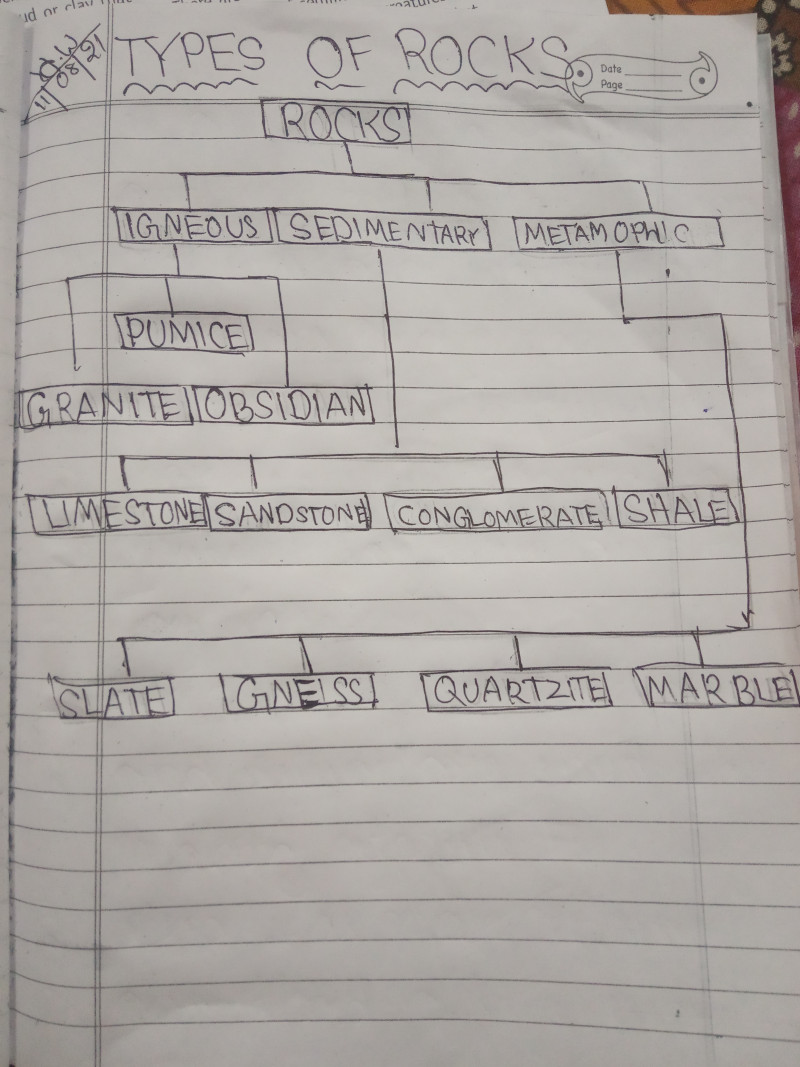 ud or clay
H.W
11/08/21
TYPES OF ROCKS
Date
Page
ROCKS
IGNEOUS SEDIMENTARY METAMOPHIC
PUMICE
GRANITE OBSIDIAN
LIMESTONE SANDSTONE CONGLOMERATE SHALE
SLATE GNEISS QUARTZITE MARBLE